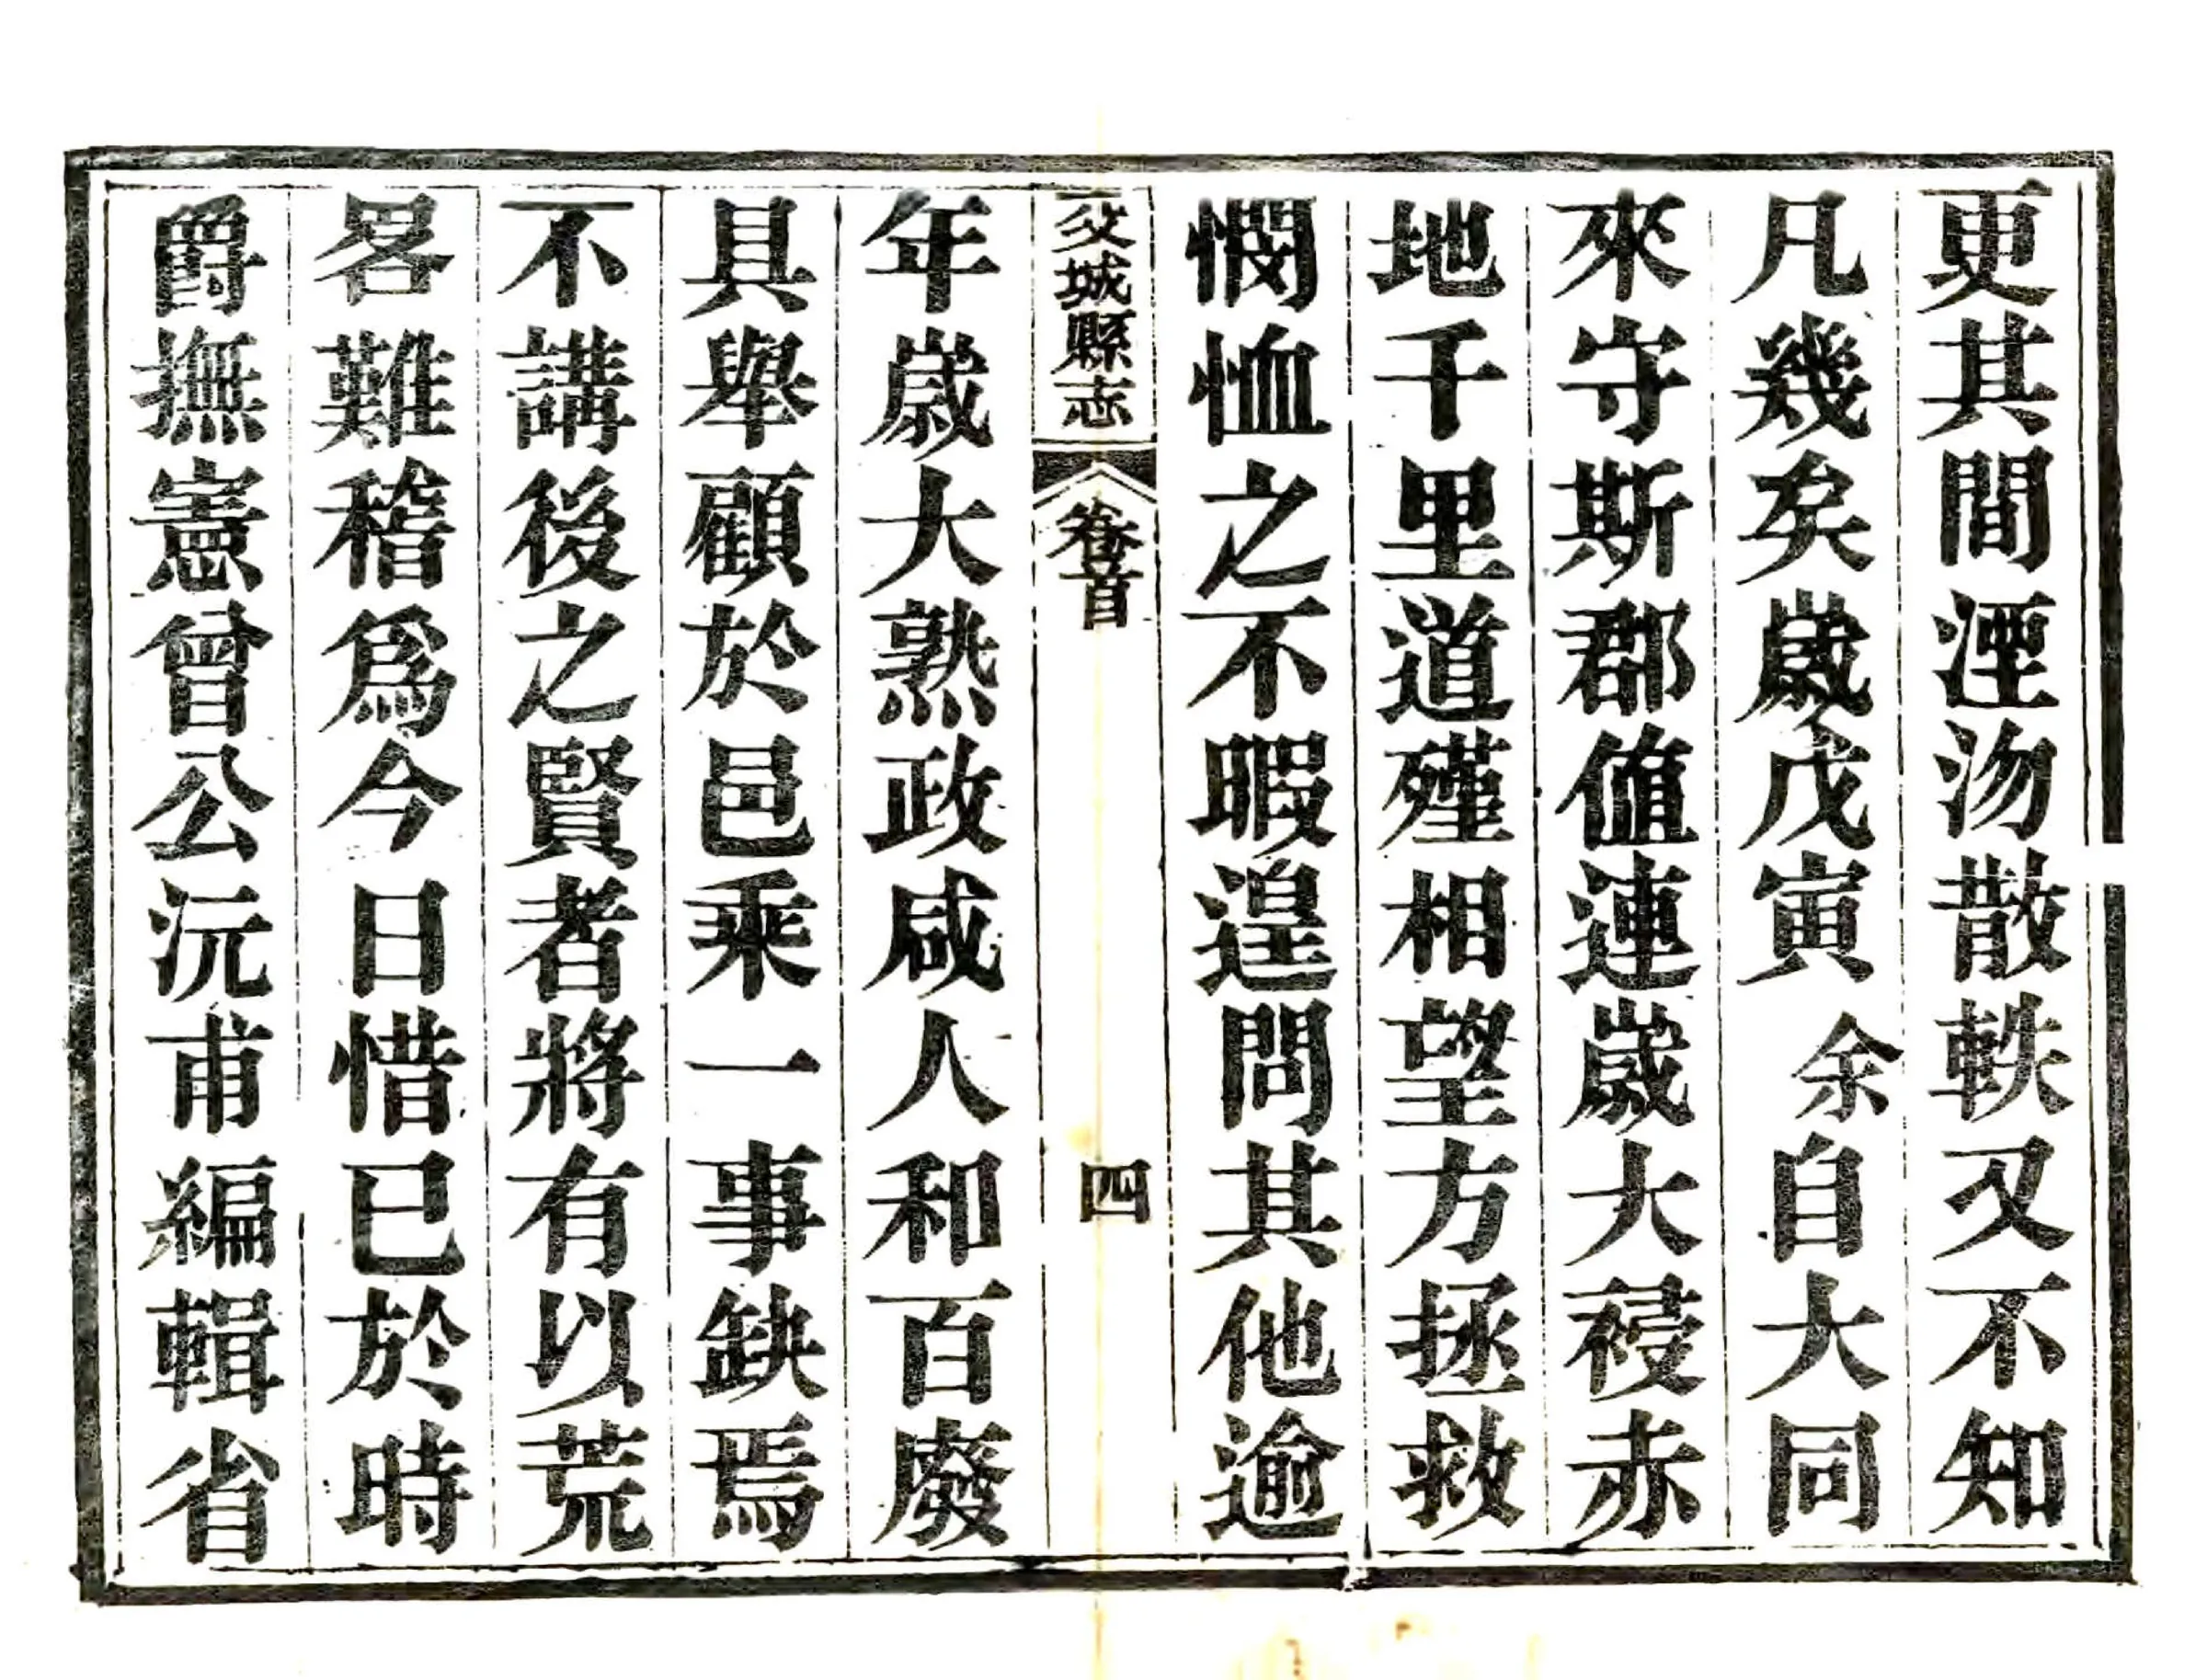 更其間湮沕散軼又不知
凡幾矣歲戊寅余自大同
來守斯郡值連歲大祲赤
地千里道殣相望方拯救
憫恤之不暇遑問其他逾
交城縣志 卷首 四
年歲大熟政咸人和百廢
具舉顧於邑乘一事缺焉
不講後之賢者將有以荒
畧難稽為今日惜已於時
爵撫憲曾公沅甫編輯省